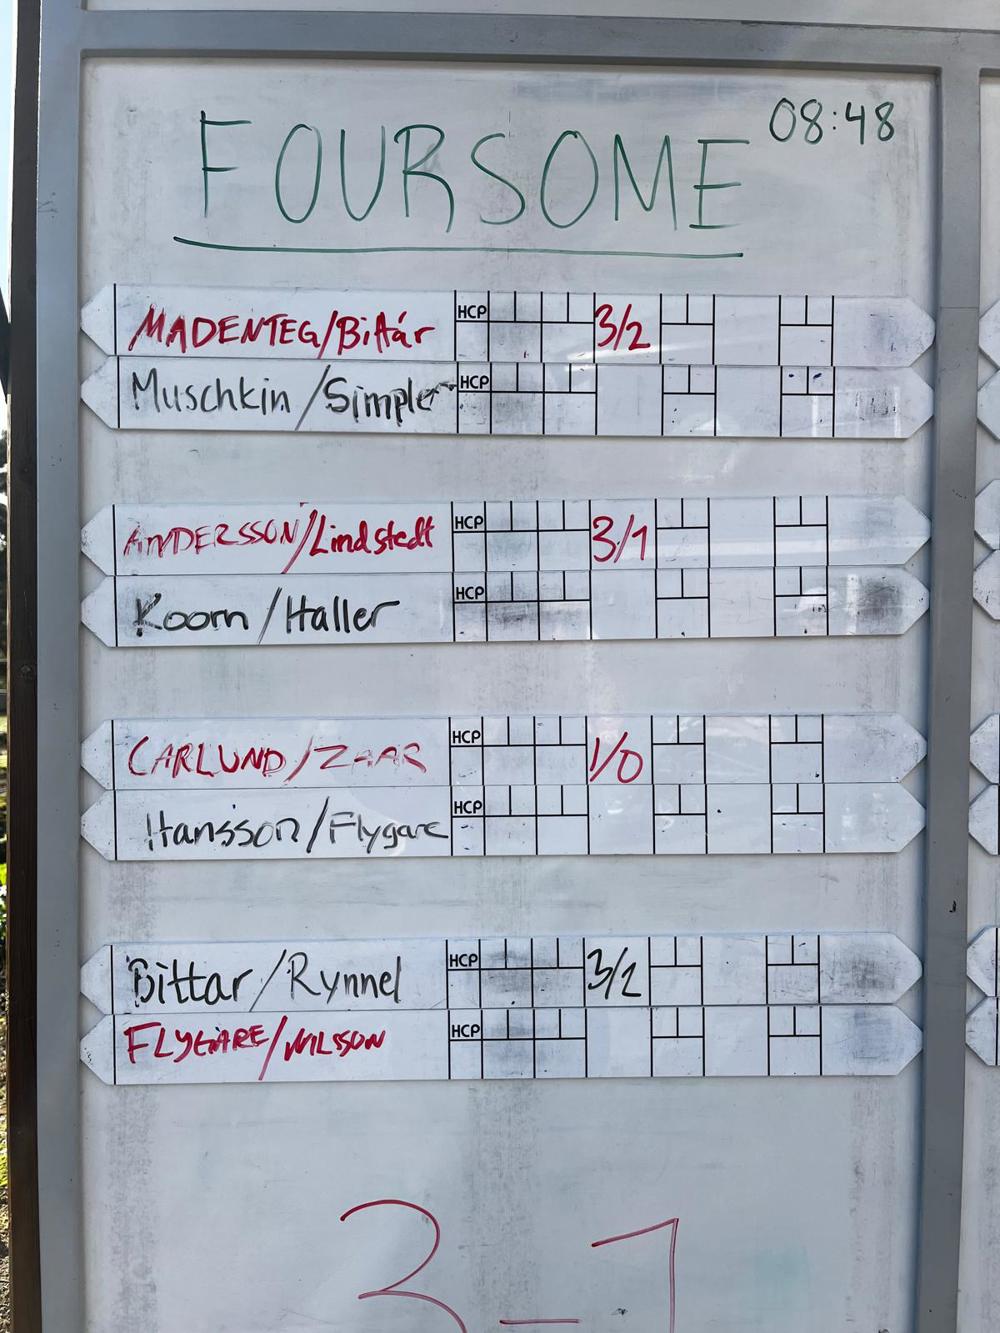 FOURSOME 08:48
MADENTEG/Bittár HCP 3/2
Muschkin/Simpler HCP
ANDERSSON/Lindstedt HCP 3/1
Koorn/Haller HCP
CARLUND/ZAAR HCP 1/0
Hansson/Flygare HCP
Bittar/Rynnel HCP 3/2
FLYGARE/NILSSON HCP
3-1